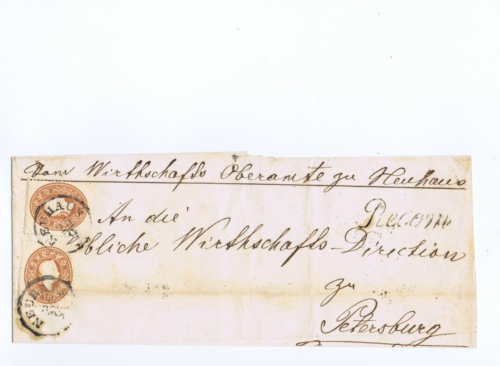 Vom Wirthschafts Oberamte zu Neuhaus
An die
bliche Wirthschafts-Direction
zu
Petersburg
NEUHAUS